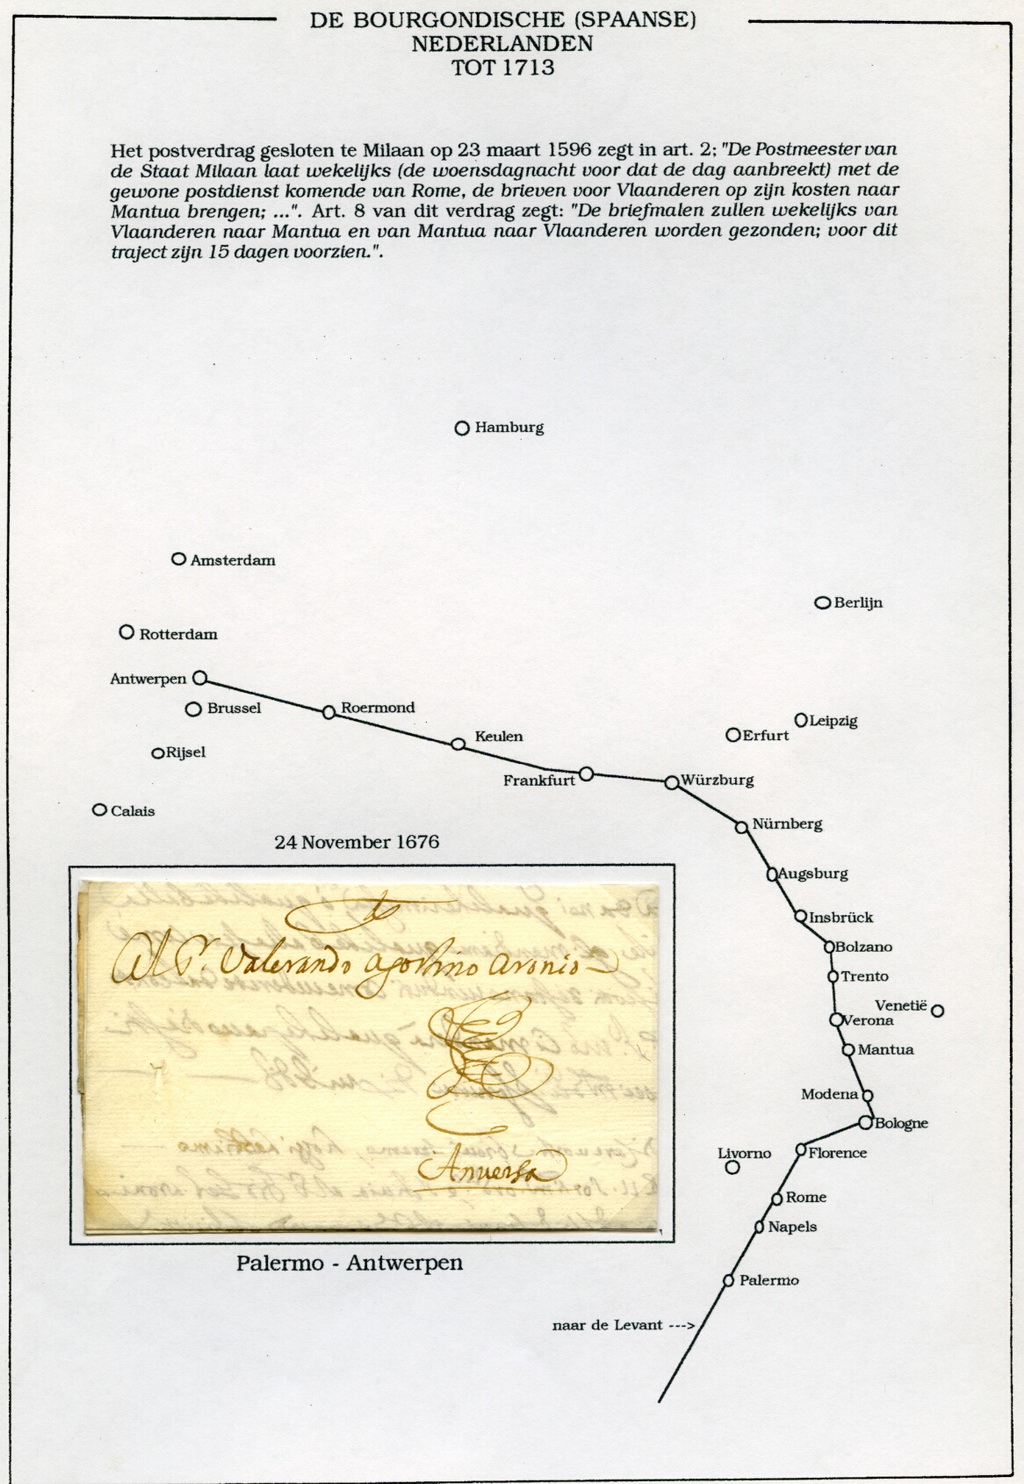 DE BOURGONDISCHE (SPAANSE)
NEDERLANDEN
TOT 1713
Het postverdrag gesloten te Milaan op 23 maart 1596 zegt in art. 2; "De Postmeester van
de Staat Milaan laat wekelijks (de woensdagnacht voor dat de dag aanbreekt) met de
gewone postdienst komende van Rome, de brieven voor Vlaanderen op zijn kosten naar
Mantua brengen; ...". Art. 8 van dit verdrag zegt: "De briefmalen zullen wekelijks van
Vlaanderen naar Mantua en van Mantua naar Vlaanderen worden gezonden; voor dit
traject zijn 15 dagen voorzien.".
Hamburg
Amsterdam
Berlijn
Rotterdam
Antwerpen
Brussel
Roermond
Leipzig
Erfurt
Keulen
Rijsel
Frankfurt
Würzburg
Calais
Nürnberg
24 November 1676
Augsburg
Insbrück
Bolzano
Trento
Venetië
Verona
Mantua
Modena
Bologne
Livorno
Florence
Rome
Napels
Palermo
naar de Levant --->
Al Sr. Valerando Agostino Aronio
Anuersa
Palermo - Antwerpen